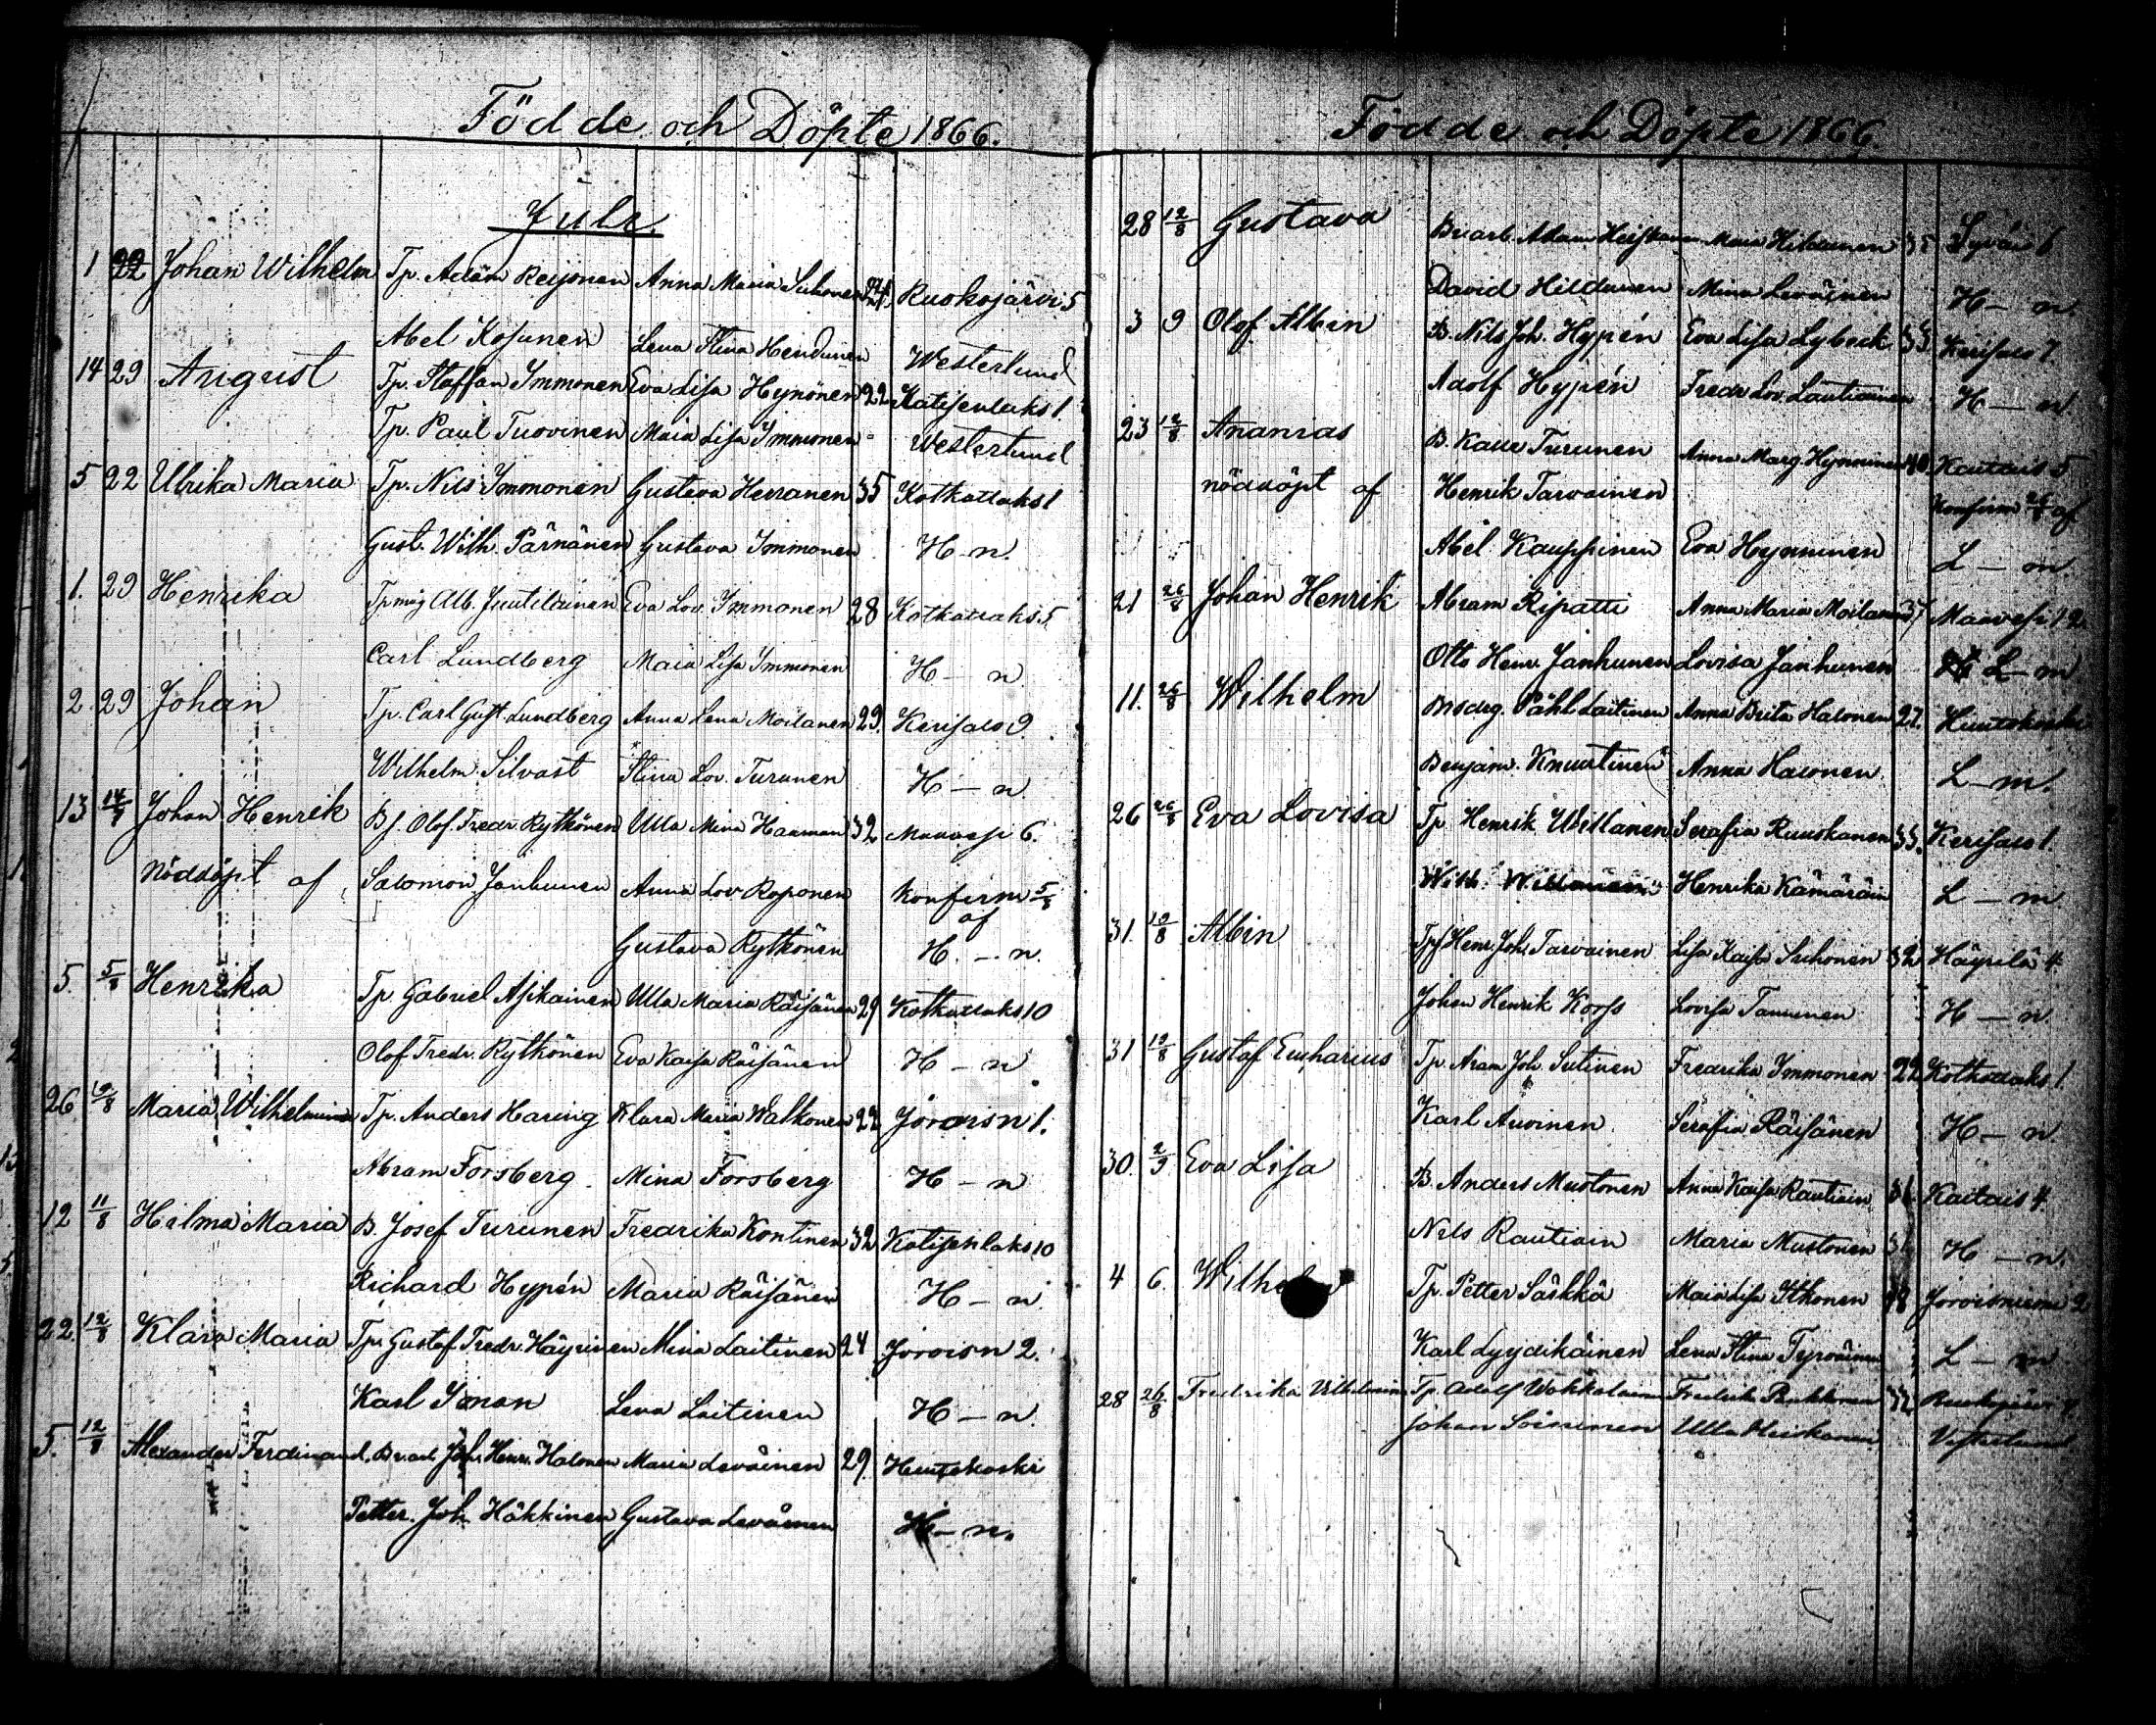 Födde och Döpte 1866.
Juli
1 22 Johan Wilhelm Tp. Adam Reijonen Anna Maria Suhonen 24. Ruokojärvi 5
Abel Kosunen Lena Stina Hendunen Westerlund
14 29 August Tp. Staffan Immonen Eva Lisa Hynönen 22 Katisenlaks 1
Tp. Paul Tuovinen Maia Lisa Immonen Westerlund
5 22 Ulrika Maria Tp. Nils Immonen Gustava Herranen 35 Kotkatlaks 1
Gust. Wilh. Pärnänen Gustava Immonen H-n.
1. 29 Henrika Tpmåg Alb. Juutilainen Eva Lov. Immonen 28 Kotkatlaks 5.
Carl Lundberg Maia Lisa Immonen H - n
2. 29 Johan Tp. Carl Gust. Lundberg Anna Lena Moilanen 29. Kerisalo 9.
Wilhelm Silvast Stina Lov. Turunen H - n
13 Johan Henrik Bs. Olof Fredr. Rytkönen Ulla Mina Hauman 32 Maavesi 6.
Nöddöpt af Salomon Janhunen Anna Lov Roponen Konfirm 5/8
af
Gustava Rytkönen H. - n.
5. 5/8 Henrika Tp. Gabriel Asikainen Ulla Maria Räisänen 29 Kotkatlaks 10
Olof Fredr. Rytkönen Eva Kaisa Räisänen H - n
26 Maria Wilhelmina Tp. Anders Haring Klara Maria Walkonen 22 Joroisn 1.
Abram Forsberg. Mina Forsberg H - n
12 11/8 Hilma Maria B. Josef Turunen Fredrika Kontinen 32 Katisenlaks 10
Richard Hypén Maria Räisänen H - n
22. 12/8 Klara Maria Tp. Gustof Fredr. Häyrinen Mina Laitinen 24 Joroisn 2.
Karl Iman Lena Laitinen H - n.
5. 12/8 Alexander Ferdinand. Br.arb. Joh. Henr. Halonen Maria Leväinen 29. Huutokoski
Petter. Joh. Häkkinen Gustava Leväinen H - n.
Födde och Döpte 1866.
28 12/8 Gustava Br.arb. Adam Maia Hildunen 35 Syväis 6
David Hildunen Mina Leväinen H - n.
3 9 Olof Albin B. Nils Joh. Hypén Eva Lisa Lybeck 33 Kerisalo 7
Adolf Hypén Fredr Lov. Lautiainen H - n
23 12/8 Ananias B. Kalle Turunen Anna Marg. Hynninen 40 Kaitais 5
nöddöpt af Henrik Tarvainen Konfirm 26/8 af
Abel Kauppinen Eva Hynninen L - m.
21 26/8 Johan Henrik Abram Ripatti Anna Maria Moilanen 37 Maavesi 12.
Otto Henr. Janhunen Lovisa Janhunen L-m
11. 26/8 Wilhelm Påhl Laitinen Anna Brita Halonen 27. Huutokoski
Benjam. Knuutinen Anna Halonen. L-m.
26 26/8 Eva Lovisa Tp. Henrik Willanen Serafia Ruuskanen 33. Kerisalo 1.
Wilh. Willanen Henrika Kämäräin L - m
31. 19/8 Albin Henr. Joh. Tarvainen Lisa Kaisa Suhonen 32 Häyrilä 4.
Johan Henrik Korss Lovisa Tanninen H - n.
31 19/8 Gustaf Eucharius Tp. Joh. Sutinen Fredrika Immonen 22 Kotkatlaks 1.
Karl Auvinen Serafia Räisänen H - n
30. 2/9 Eva Lisa B. Anders Mustonen Anna Kaisa Rautiain Kaitais 4.
Nils Rautiain Maria Mustonen H - n.
4 6. Tp. Petter Särkkä Maia Lisa Itkonen Joroisniemi 2
Karl Lyydikäinen Lena Stina Tyrväinen L - m
28 26/8 Fredrika Vilhelmina Tp. Adolf Fredrika 32
Johan Soininen Ulla Heiskanen Vesterlund